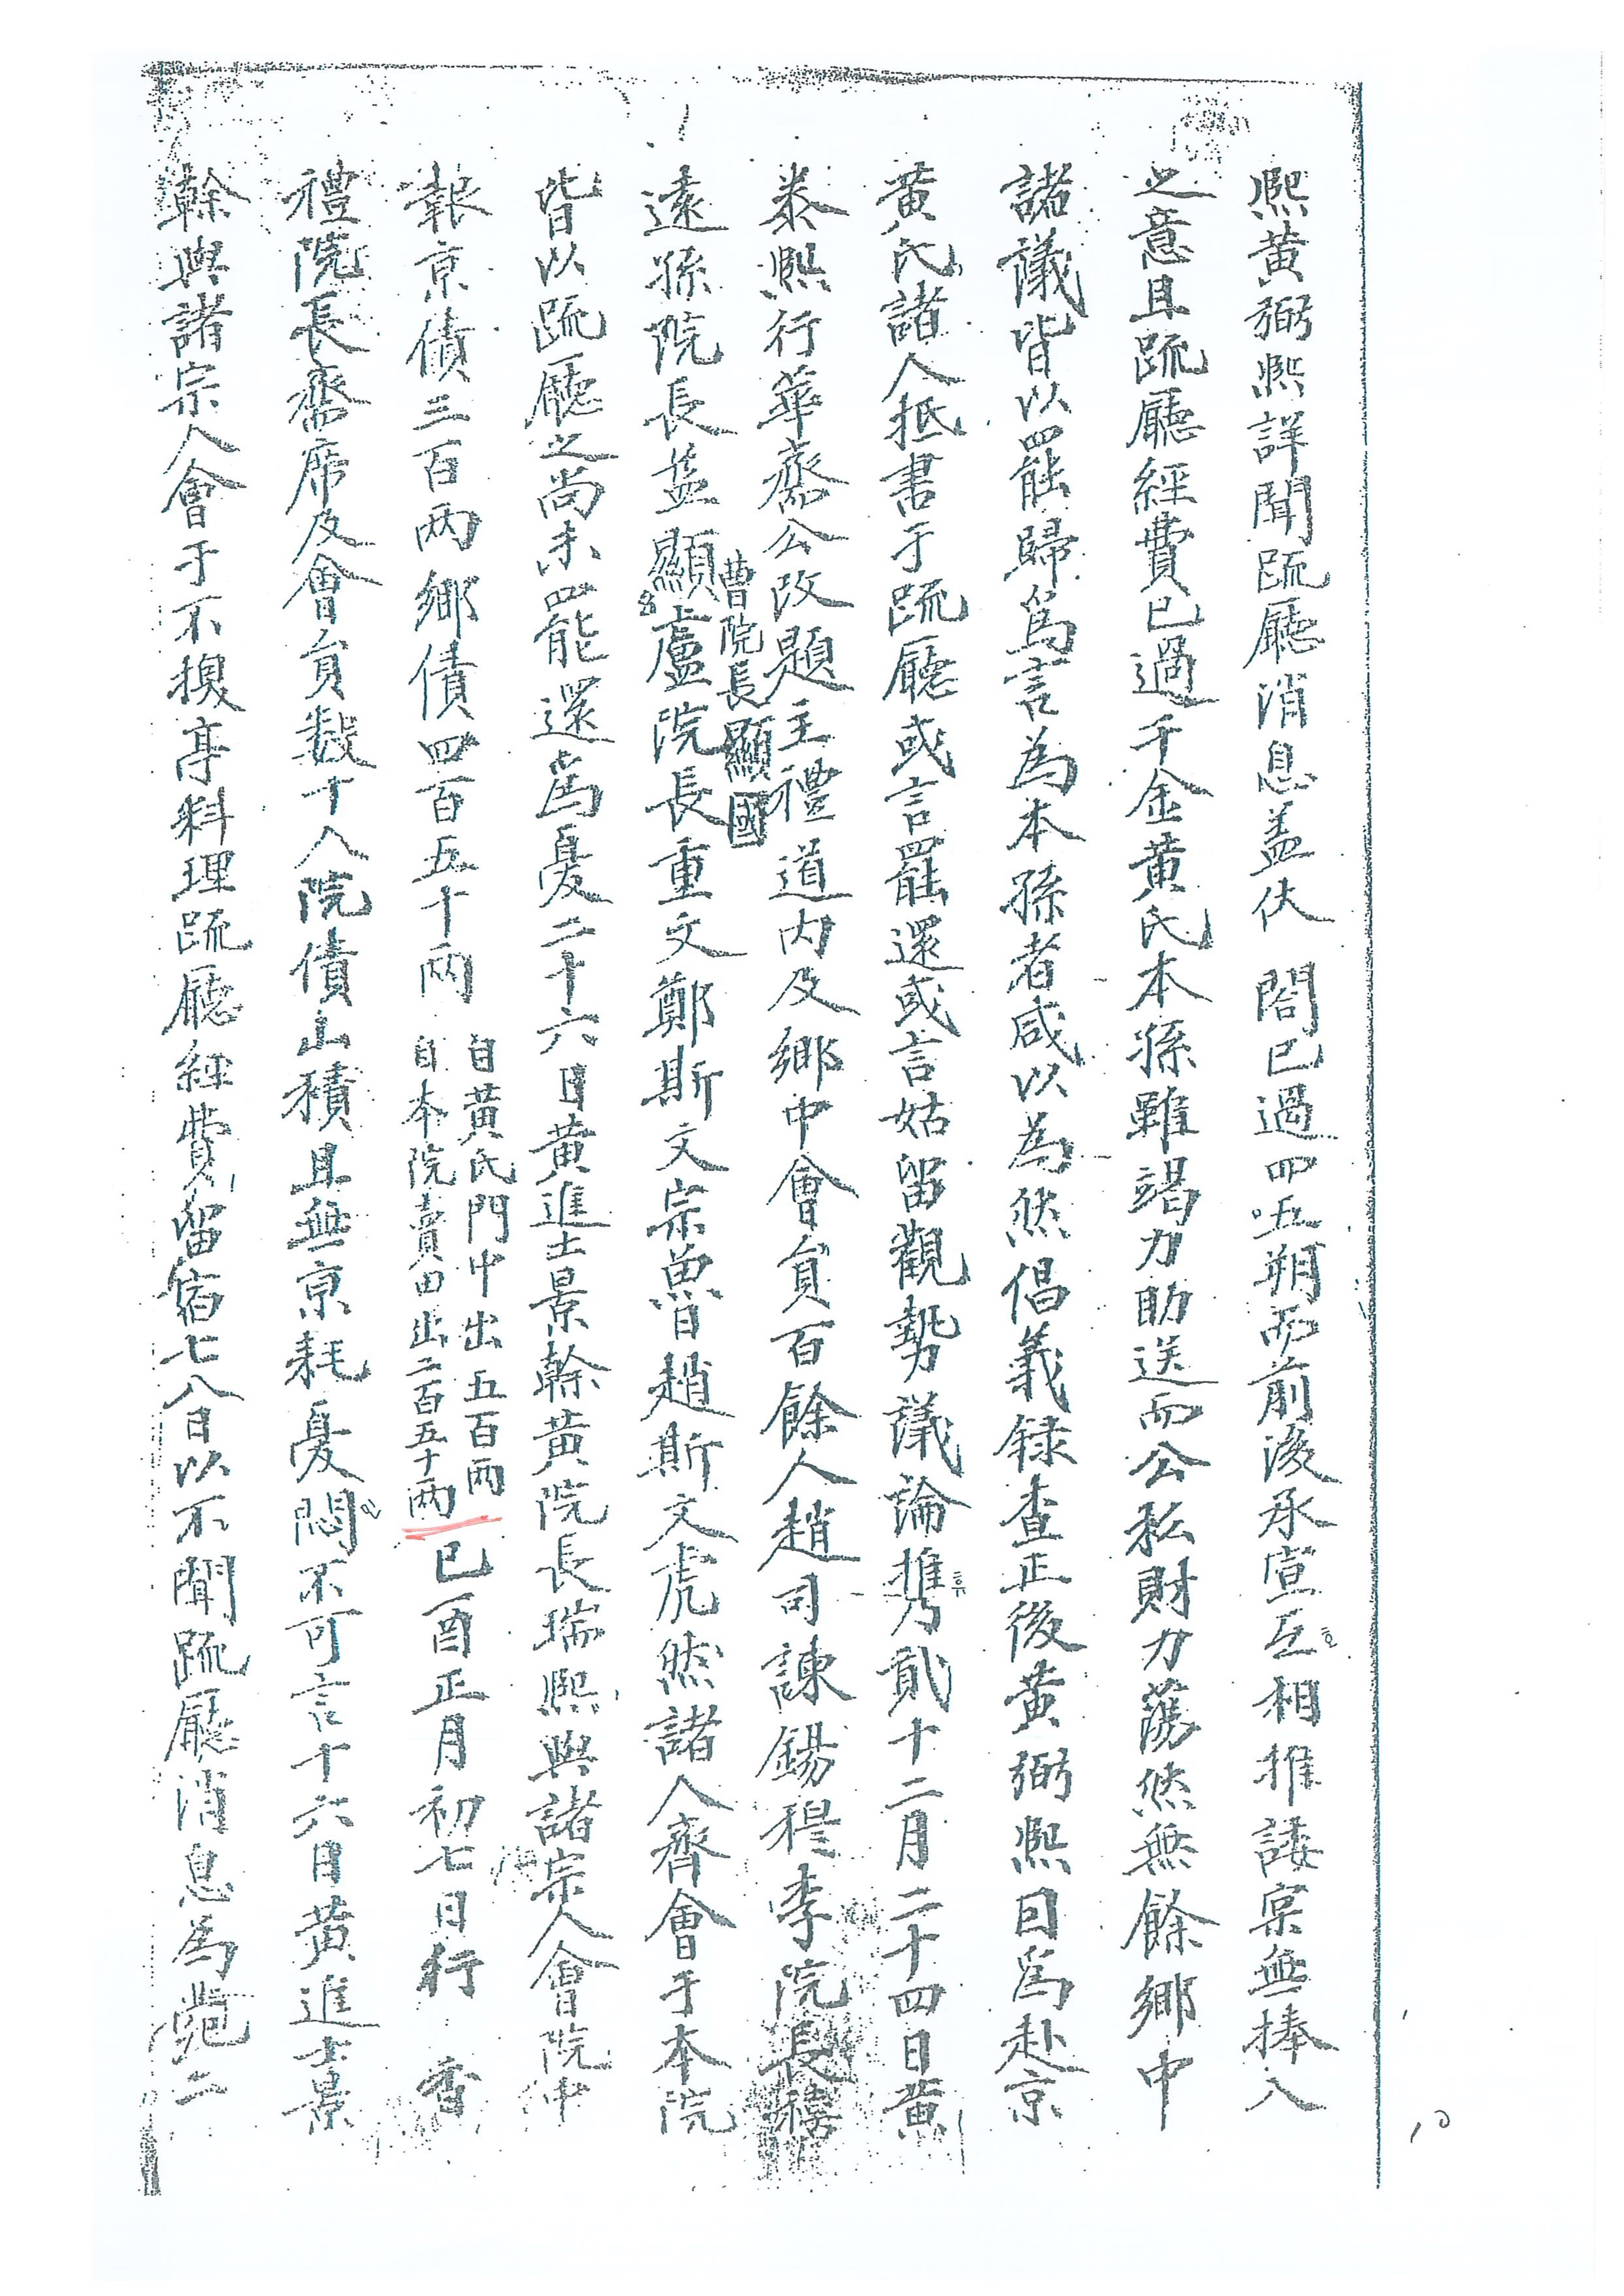 熙黃弼熙詳聞疏廳消息盖伏 閤已過四五朔而前後承宣互相推諉寀無捧入
之意且疏廳經費已過千金黃氏本孫雖竭力助送而公私財力蕩然無餘鄉中
諸議皆以罷歸爲言為本孫者咸以為然倡義錄查正後黃弼熙回爲赴京
黃氏諸人抵書于疏廳或言罷還或言姑留觀勢議論携貳十二月二十四日黃
泰熙行華齋公改題主禮道內及鄉中會員百餘人趙司諫錫穆李院長
曹院長顯國
遠孫院長盖顯盧院長重文鄭斯文宗魯趙斯文虎然諸人齊會于本院
皆以疏廳之尚未罷還爲憂二十六日黃進士景榦黃院長瑞熙與諸宗人會院中
報京債三百兩鄉債四百五十兩
自黃氏門中出五百兩
自本院賣田出二百五十兩
已酉正月初七日行 香
禮院長齋席及會員數十人院債山積且無京耗憂悶不可言十六日黃進士景
榦與諸宗人會于不換亭料理疏廳經費留宿七八日以不聞疏廳消息為菀二
10